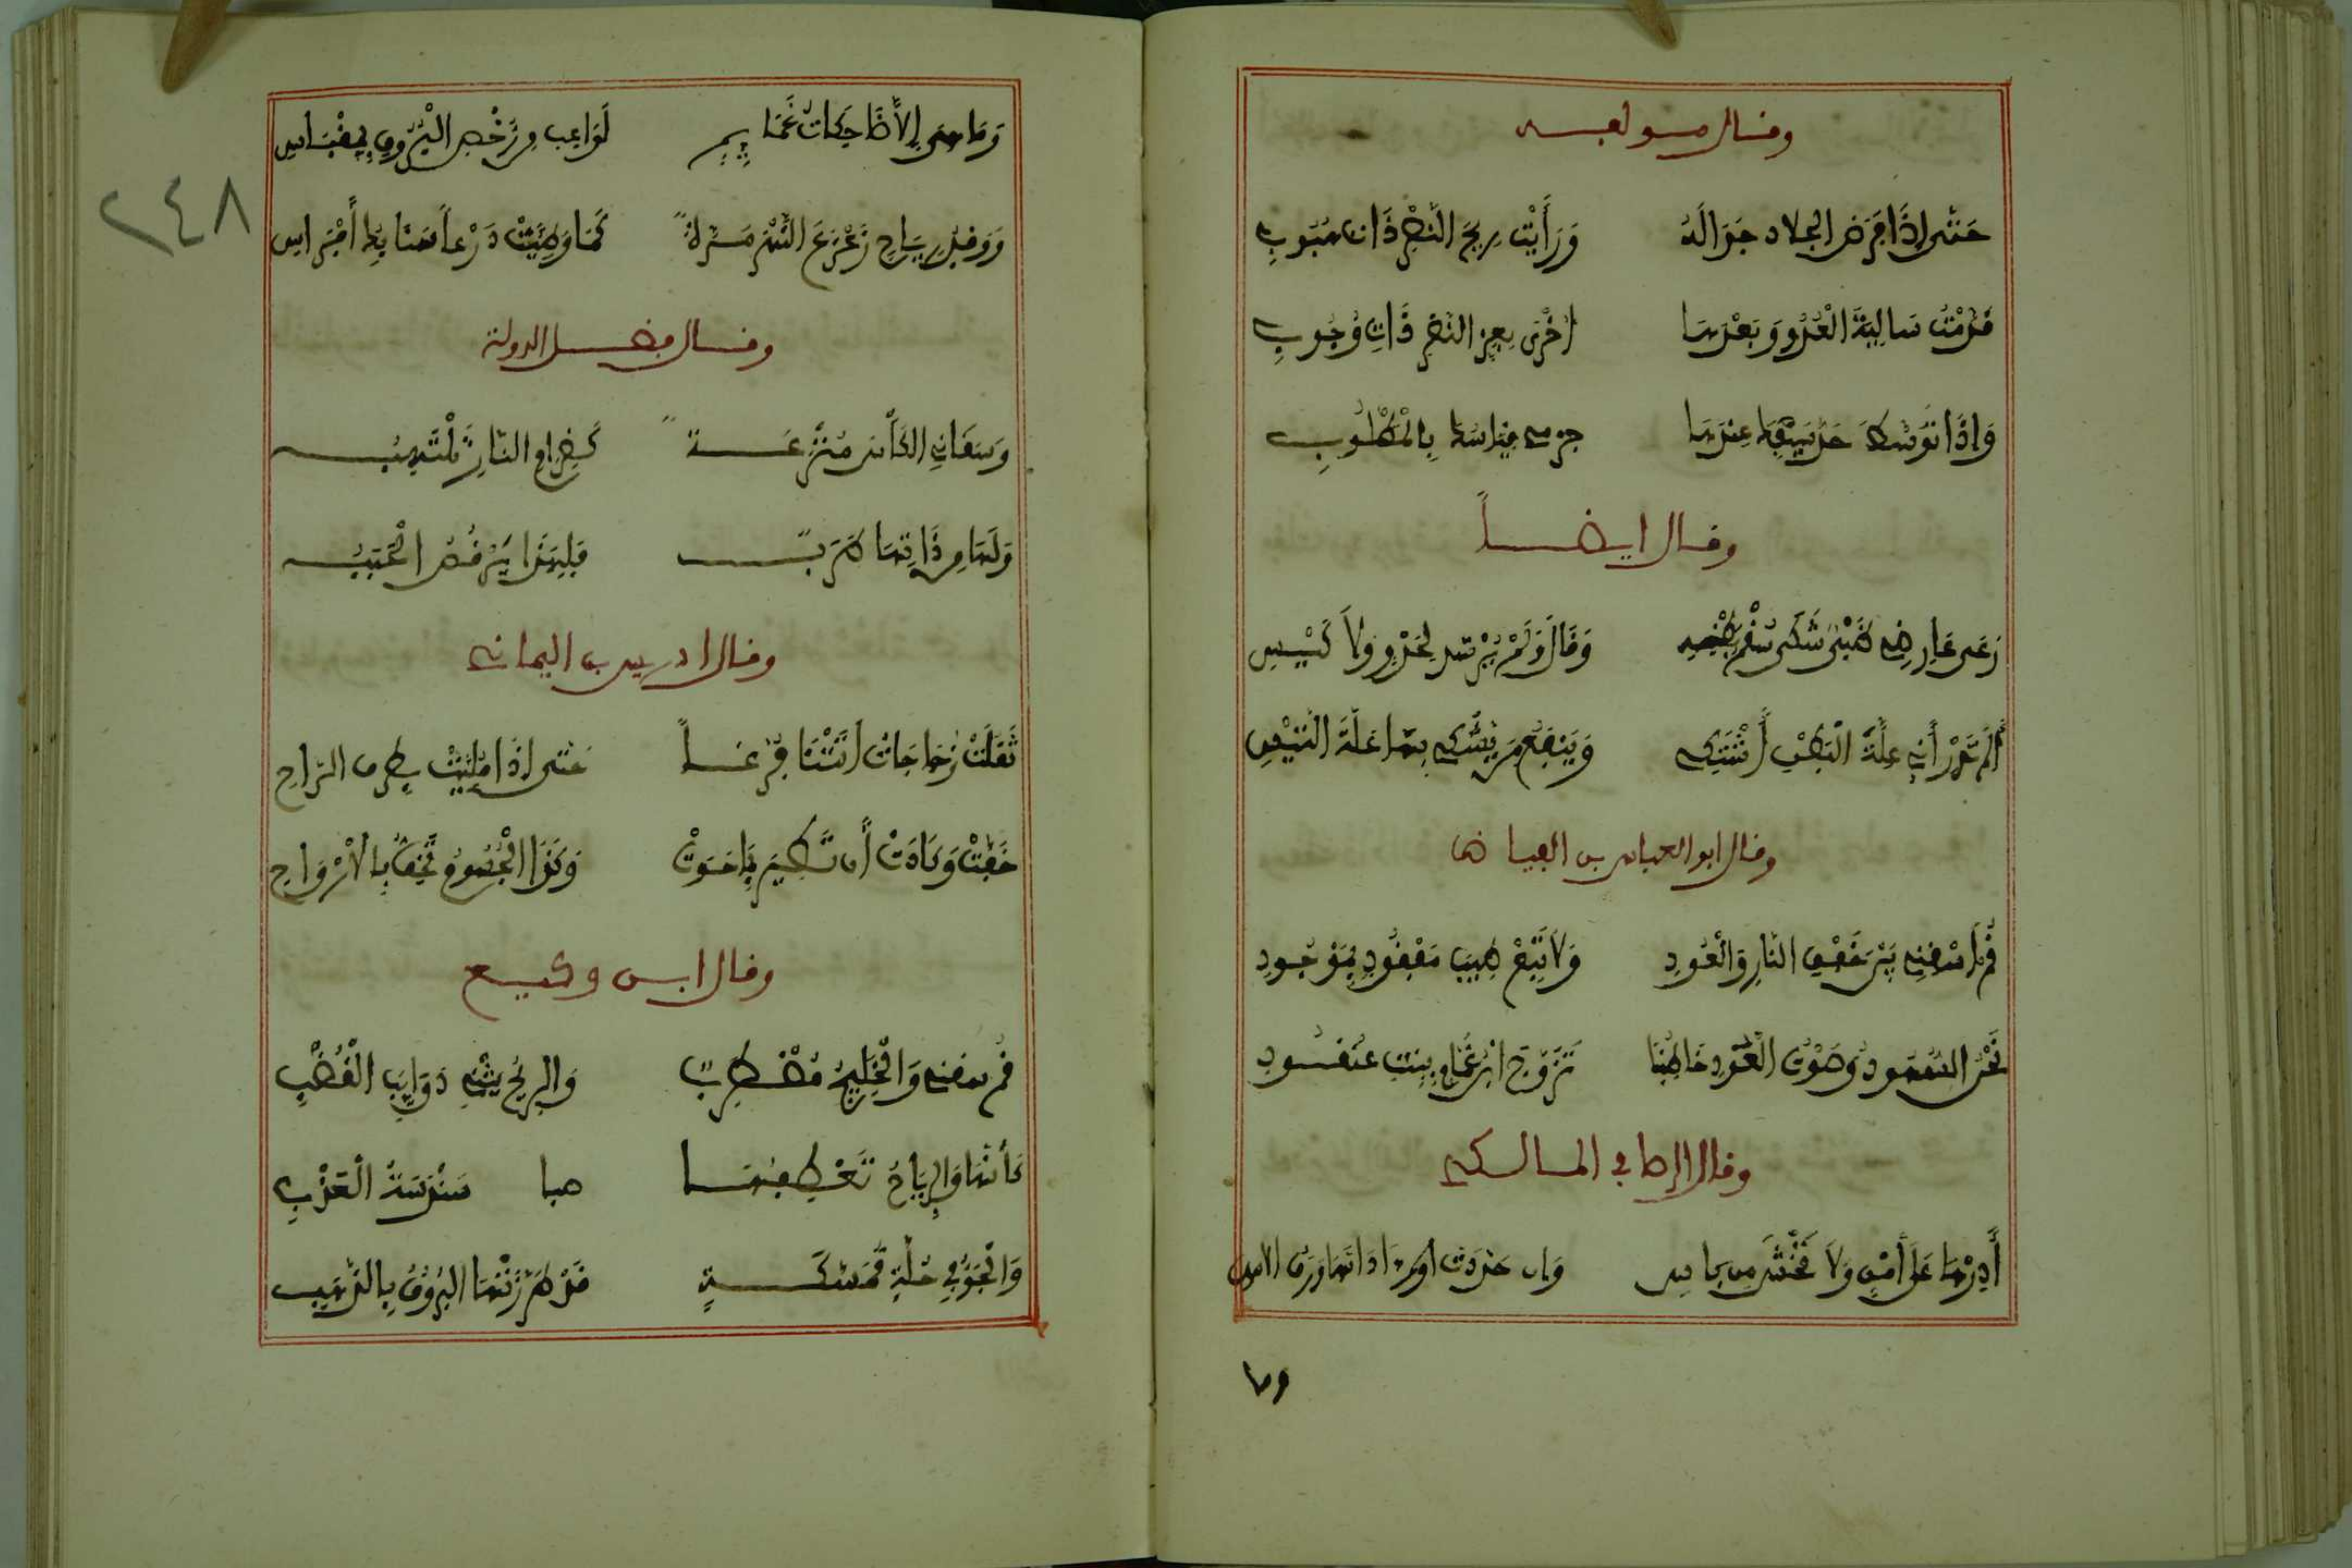 وقال مولفه
حتى إذا فرض الجلاد جواله ورأيت ريح النصر ذات هبوب
قدمت سالبة العدو وبعدها أخرى بعز النصر ذات وجوب
وإذا توسط حد سيفك عندها جزءي قياسك بالمطلوب
وقال ايضاً
وقال ولم
ألم تدر أني علة البطن أشتكي وينفع من يشكي بها علة النفس
وقال ابو العباس بن الفياض
قم فاسقني بين خفق الناي والعود ولا تبع طيب مفقود بموجود
نحن الشهود وصوت العود خاطبنا نزوج ابن غمام بنت عنقود
وقال الرصافي المالكي
أدرها على أمن ولا تخش من باس وإن حددت
وما
٢٤٨
وما هي إلا ضاحكات غمايم لواعب من رخص البروق بمقباس
ووفد رياح زعزع النهر مدة كما وطئت درعاً سنابك أفراس
وقال فضل الدولة
وسقاني الكأس مترعة كضرام النار تلتهب
ولها من ذاتها طرب فلهذا يرقص الحبب
وقال ادريس بن اليماني
ثقلت زجاجات أتتنا فرغاً حتى إذا ملئت بصرف الراح
خفت وكادت أن تطير بما حوت وكذا الجسوم تخف بالأرواح
وقال ابن وكيع
قم فاسقني والخليج مضطرب والريح يثني ذوايب القضب
كأنها والرياح تعطفها صبا سندسة العذب
والجو في حلة ممسكة قد طرزتها البروق بالذهب